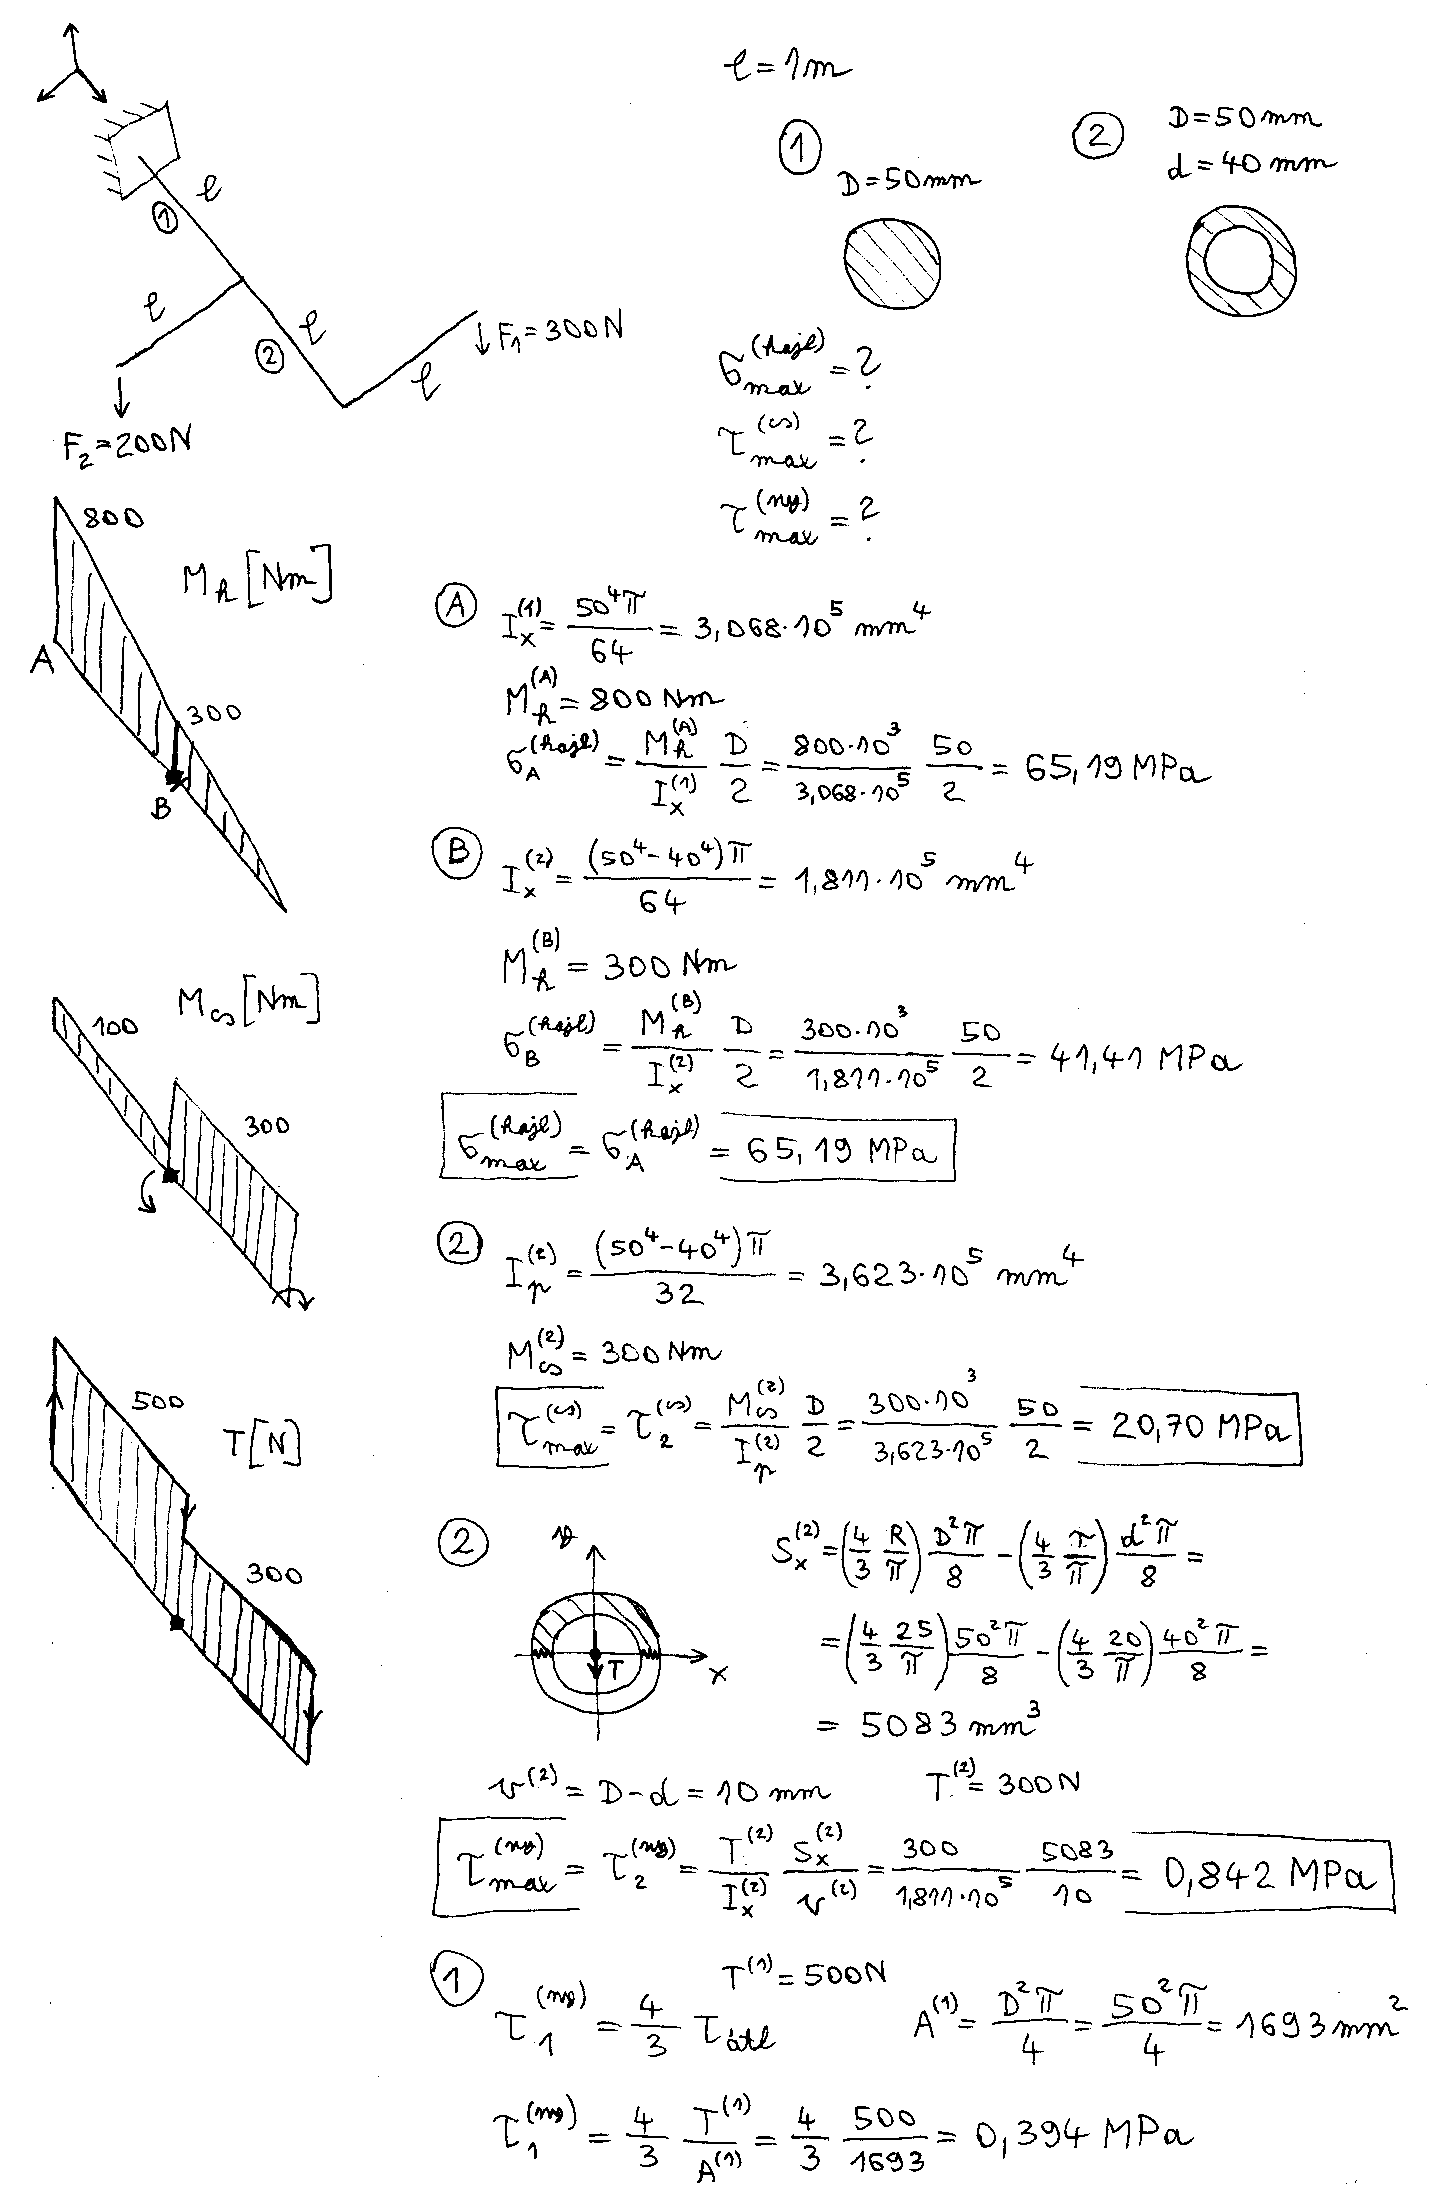 ℓ = 1m
① D=50mm
② D=50mm
d=40mm
ℓ
①
ℓ
ℓ
②
ℓ
↓F₁=300N
F₂=200N
σ_max^(hajl) = ?
τ_max^(cs) = ?
τ_max^(ny) = ?
800
M_h [Nm]
A
300
B
Ⓐ I_x^(1) = 50⁴π/64 = 3,068·10⁵ mm⁴
M_h^(A) = 800 Nm
σ_A^(hajl) = M_h^(A)/I_x^(1) D/2 = 800·10³/3,068·10⁵ 50/2 = 65,19 MPa
Ⓑ I_x^(2) = (50⁴-40⁴)π/64 = 1,811·10⁵ mm⁴
M_h^(B) = 300 Nm
σ_B^(hajl) = M_h^(B)/I_x^(2) D/2 = 300·10³/1,811·10⁵ 50/2 = 41,41 MPa
σ_max^(hajl) = σ_A^(hajl) = 65,19 MPa
M_cs [Nm]
100
300
② I_p^(2) = (50⁴-40⁴)π/32 = 3,623·10⁵ mm⁴
M_cs^(2) = 300 Nm
τ_max^(cs) = τ_2^(cs) = M_cs^(2)/I_p^(2) D/2 = 300·10³/3,623·10⁵ 50/2 = 20,70 MPa
500
T[N]
300
② y
T
x
S_x^(2) = (4/3 R/π) D²π/8 - (4/3 r/π) d²π/8 =
= (4/3 25/π) 50²π/8 - (4/3 20/π) 40²π/8 =
= 5083 mm³
v^(2) = D-d = 10 mm
T^(2) = 300N
τ_max^(ny) = τ_2^(ny) = T^(2)/I_x^(2) S_x^(2)/v^(2) = 300/1,811·10⁵ 5083/10 = 0,842 MPa
① T^(1) = 500N
τ_1^(ny) = 4/3 τ_átl
A^(1) = D²π/4 = 50²π/4 = 1693 mm²
τ_1^(ny) = 4/3 T^(1)/A^(1) = 4/3 500/1693 = 0,394 MPa